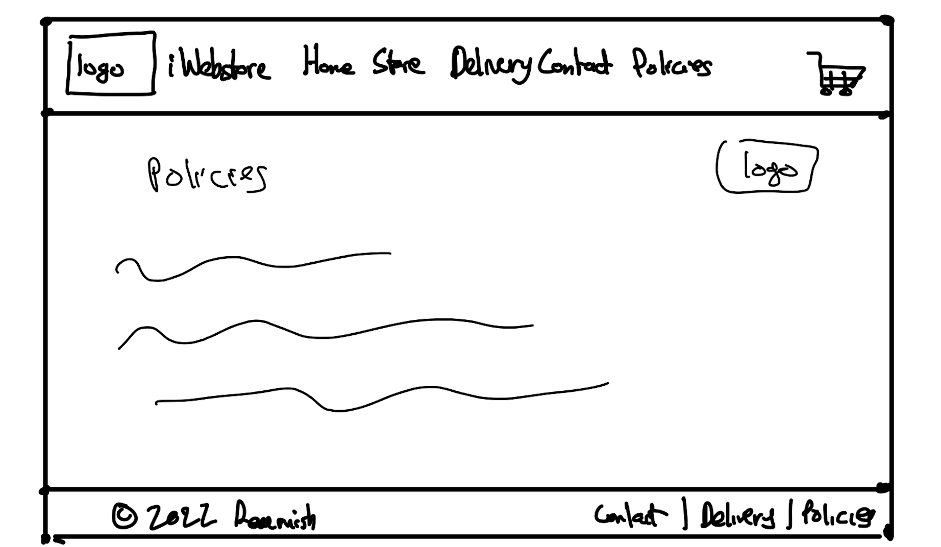 logo iWebstore Home Store Delivery Contact Policies
Policies
logo
© 2022
Contact | Delivery | Policies